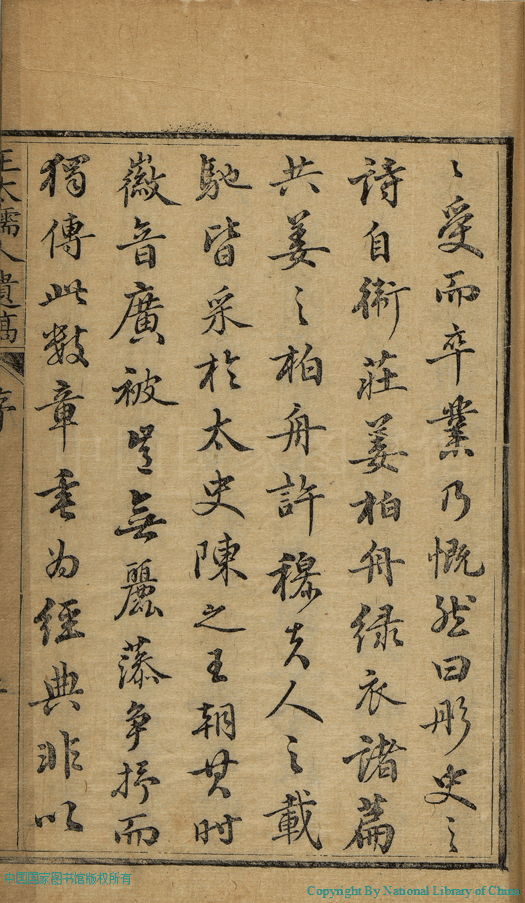 〻受而卒業乃慨然曰彤史之
詩自衛莊姜柏舟綠衣諸篇
共姜之柏舟許穆夫人之載
馳皆采於太史陳之王朝其時
徽音廣被豈無麗藻爭抒而
獨傳此數章垂為經典非以
王太孺人遺稿 序
中国国家图书馆版权所有
Copyright By National Library of China